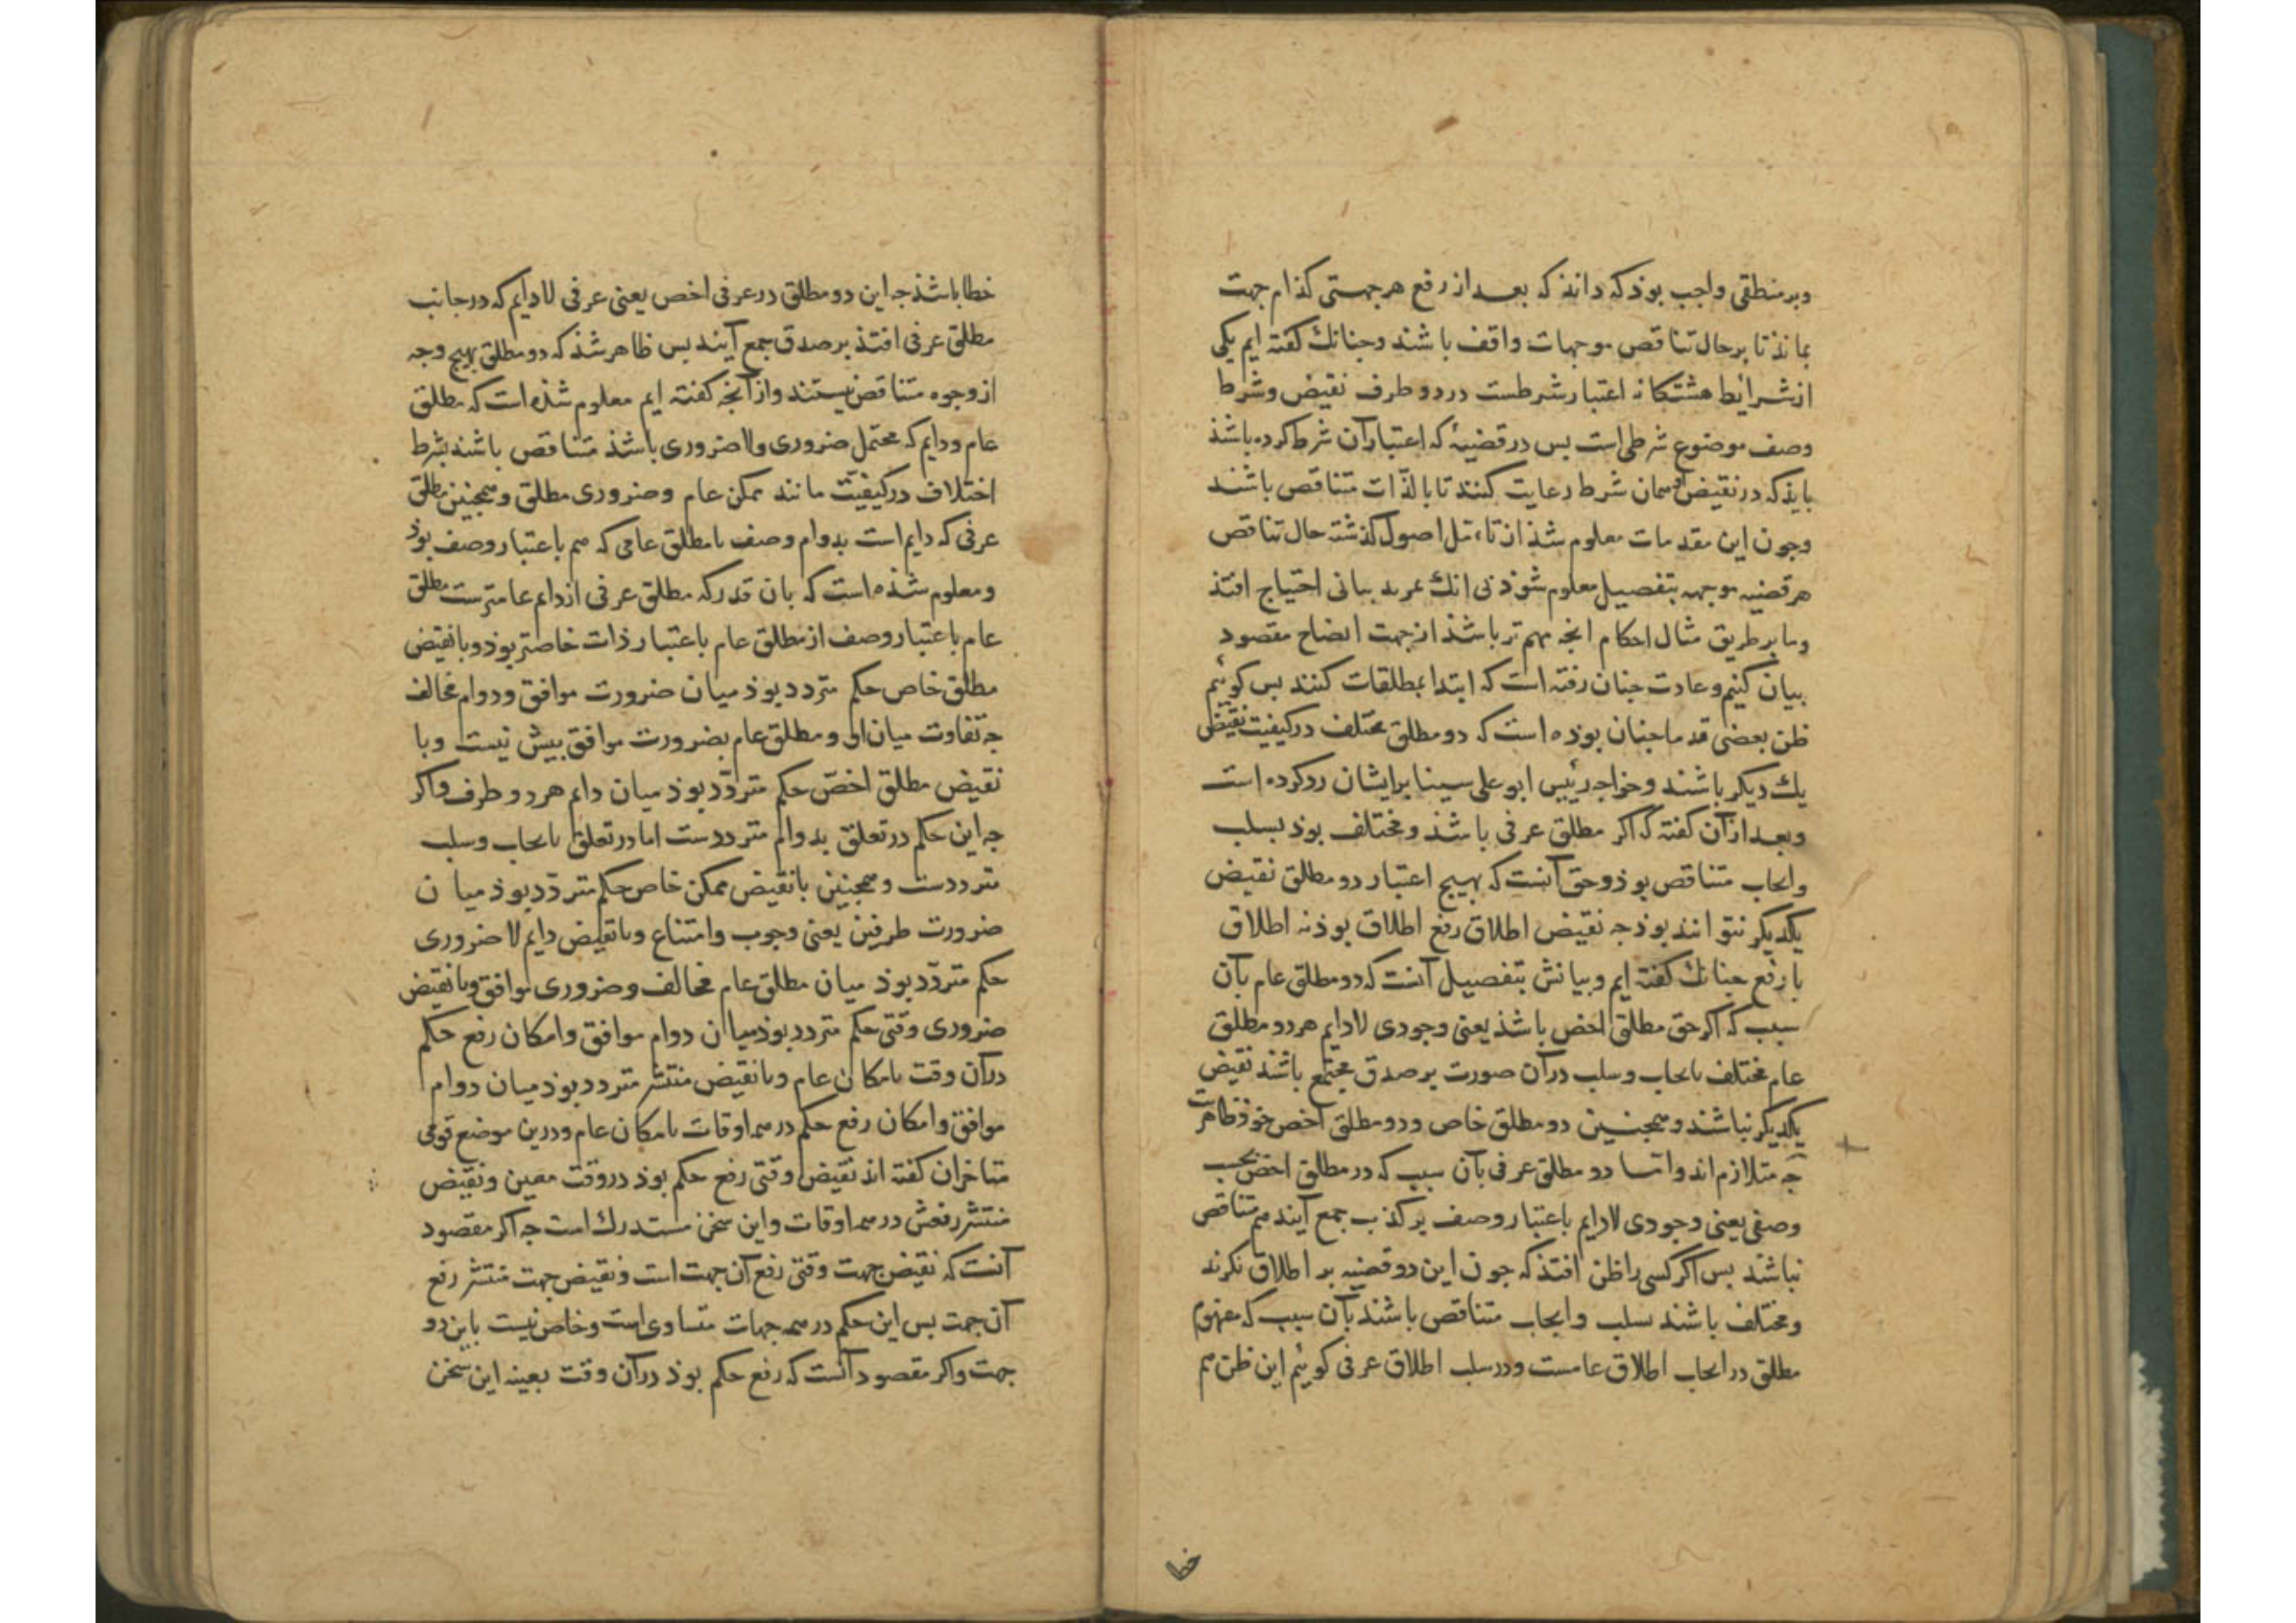 وبر منطقی واجب بوذ که داند که بعد از رفع هر جهتی کذام جهت
بماند تا بر حال تناقض موجهات واقف باشند وجنانك کفته ایم یکی
از شرایط هشتکانه اعتبار شرطست در دو طرف نقیض وشرط
وصف موضوع شرطی است بس در قضیهٔ که اعتبار آن شرط کرده باشذ
بایذ که در نقیض همان شرط رعایت کنند تا بالذّات متناقض باشند
وجون این مقدمات معلوم شذ از تامل اصول کذشته حال تناقض
هر قضیه موجهه بتفصیل معلوم شوذ بی انك بمزید بیانی احتیاج افتذ
وما بر طریق مثال احکام انجه مهم تر باشذ از جهت ایضاح مقصود
بیان کنیم وعادت جنان رفته است که ابتدا بمطلقات کنند بس کوئیم
ظن بعضی قدما جنان بوذه است که دو مطلق مختلف در کیفیت نقیض
یك دیکر باشند وخواجه رئیس ابو علی سینا بر ایشان رد کرده است
وبعد از آن کفته که اکر مطلق عرفی باشذ ومختلف بوذ بسلب
وایجاب متناقض بوذ وحق آنست که بهیج اعتبار دو مطلق نقیض
یکدیکر نتوانند بوذ جه نقیض اطلاق رفع اطلاق بوذ نه اطلاق
با رفع جنانك کفته ایم وبیانش بتفصیل آنست که دو مطلق عام بآن
سبب که اکر حق مطلق اخض باشذ یعنی وجودی لادایم هر دو مطلق
عام مختلف بایجاب وسلب در آن صورت بر صدق مجتمع باشند نقیض
یکدیکر نباشند وهمجنین دو مطلق خاص ودو مطلق اخص خوذ ظاهرست
جه متلازم اند واما دو مطلق عرفی بآن سبب که در مطلق اخص بحسب
وصفی یعنی وجودی لادایم باعتبار وصف بر کذب جمع آیند هم متناقض
نباشند بس اکر کسی را ظن افتذ که جون این دو قضیه بر اطلاق نکرند
ومختلف باشند بسلب وایجاب متناقض باشند بآن سبب که مفهوم
مطلق در ایجاب اطلاق عامست ودر سلب اطلاق عرفی کوئیم این ظن هم
خطا
خطا باشذ جه این دو مطلق در عرفی اخص یعنی عرفی لادایم که در جانب
مطلق عرفی افتذ بر صدق جمع آیند بس ظاهر شذ که دو مطلق بهیج وجه
از وجوه متناقض نیستند واز آنجه کفته ایم معلوم شذه است که مطلق
عام ودایم که محتمل ضروری ولاضروری باشذ متناقض باشند بشرط
اختلاف در کیفیّت مانند ممکن عام وضروری مطلق وهمجنین مطلق
عرفی که دایم است بدوام وصف با مطلق عامی که هم باعتبار وصف بوذ
ومعلوم شذه است که بان قدر که مطلق عرفی از دایم عامترست مطلق
عام باعتبار وصف از مطلق عام باعتبار ذات خاصتر بوذ وبا نقیض
مطلق خاص حکم متردد بوذ میان ضرورت موافق ودوام مخالف
جه تفاوت میان او ومطلق عام بضرورت موافق بیش نیست وبا
نقیض مطلق اخصّ حکم متردّد بوذ میان دایم هر دو طرف واکر
جه این حکم در تعلق بدوام مترددست اما در تعلق بایجاب وسلب
مترددست وهمجنین با نقیض ممکن خاص حکم متردّد بوذ میان
ضرورت طرفین یعنی وجوب وامتناع وبا نقیض دایم لاضروری
حکم متردّد بوذ میان مطلق عام مخالف وضروری موافق وبا نقیض
ضروری وقتی حکم متردد بوذ میان دوام موافق وامکان رفع حکم
در آن وقت بامکان عام وبا نقیض منتشر متردد بوذ میان دوام
موافق وامکان رفع حکم در همه اوقات بامکان عام ودرین موضع قومی
متاخران کفته اند نقیض وقتی رفع حکم بوذ در وقت معین ونقیض
منتشر رفعش در همه اوقات واین سخن مستدرك است جه اکر مقصود
آنست که نقیض جهت وقتی رفع آن جهت است ونقیض جهت منتشر رفع
آن جهت بس این حکم در همه جهات متساوی است وخاص نیست باین دو
جهت واکر مقصود آنست که رفع حکم بوذ در آن وقت بعینه این سخن